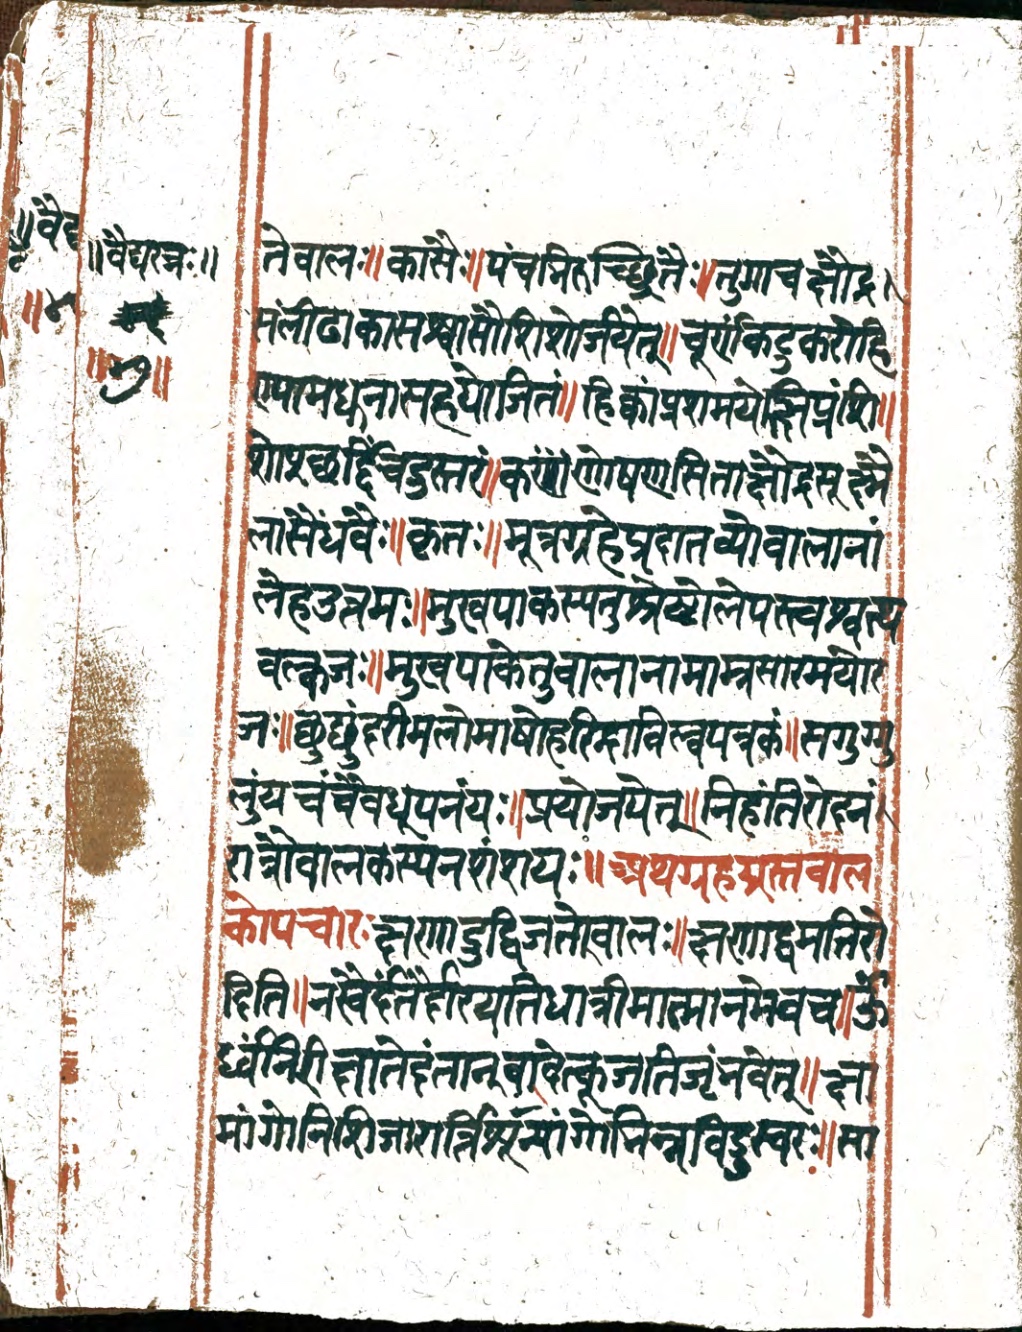 ॥वैद्यरत्नः॥
॥७॥
तेवालः॥कासैः॥पंचभिरुच्छ्रितैः॥तुगाचक्षौद्र
संलीढाकासश्वासौशिशोर्जयेत्॥चूर्णकटुकरोहि
ण्यामधुनासहयोजितं॥हिक्कांप्रशमयेत्क्षिप्रंशि॥
शोश्छर्द्दिंचदुस्तरां॥कणोषणसिताक्षौद्रसूक्ष्मै
लासैंधवैः॥कृतः॥मूत्रग्रहेप्रदातव्योवालानां
लेहउत्तमः॥मुखपाकस्यतुश्रेष्ठोलेपस्त्वश्वत्थ
वल्कजः॥मुखपाकेतुवालानामाम्रसारमयोर
जः॥छुछुंदरीमलोमाषोहरिद्राविल्वपत्रकं॥सगुग्गु
लुंयचंचैवधूपनंयः॥प्रयोजयेत्॥निहंतिरोदनं
रात्रौवालकस्यनशंशयः॥अथग्रहग्रस्तवाल
कोपचारःक्षणादुद्विजतेवालः॥क्षणाद्वमतिरो
दिति॥नखैर्दंतैर्दारयतिधात्रीमात्मानमेवच॥ऊ
र्ध्वंनिरीक्षतेदंतान्खादेत्कूजतिजृंनवेत्॥क्षा
मांगोनिशिजागर्त्तिशून्यांगोभिन्नविडुस्वरः॥सा